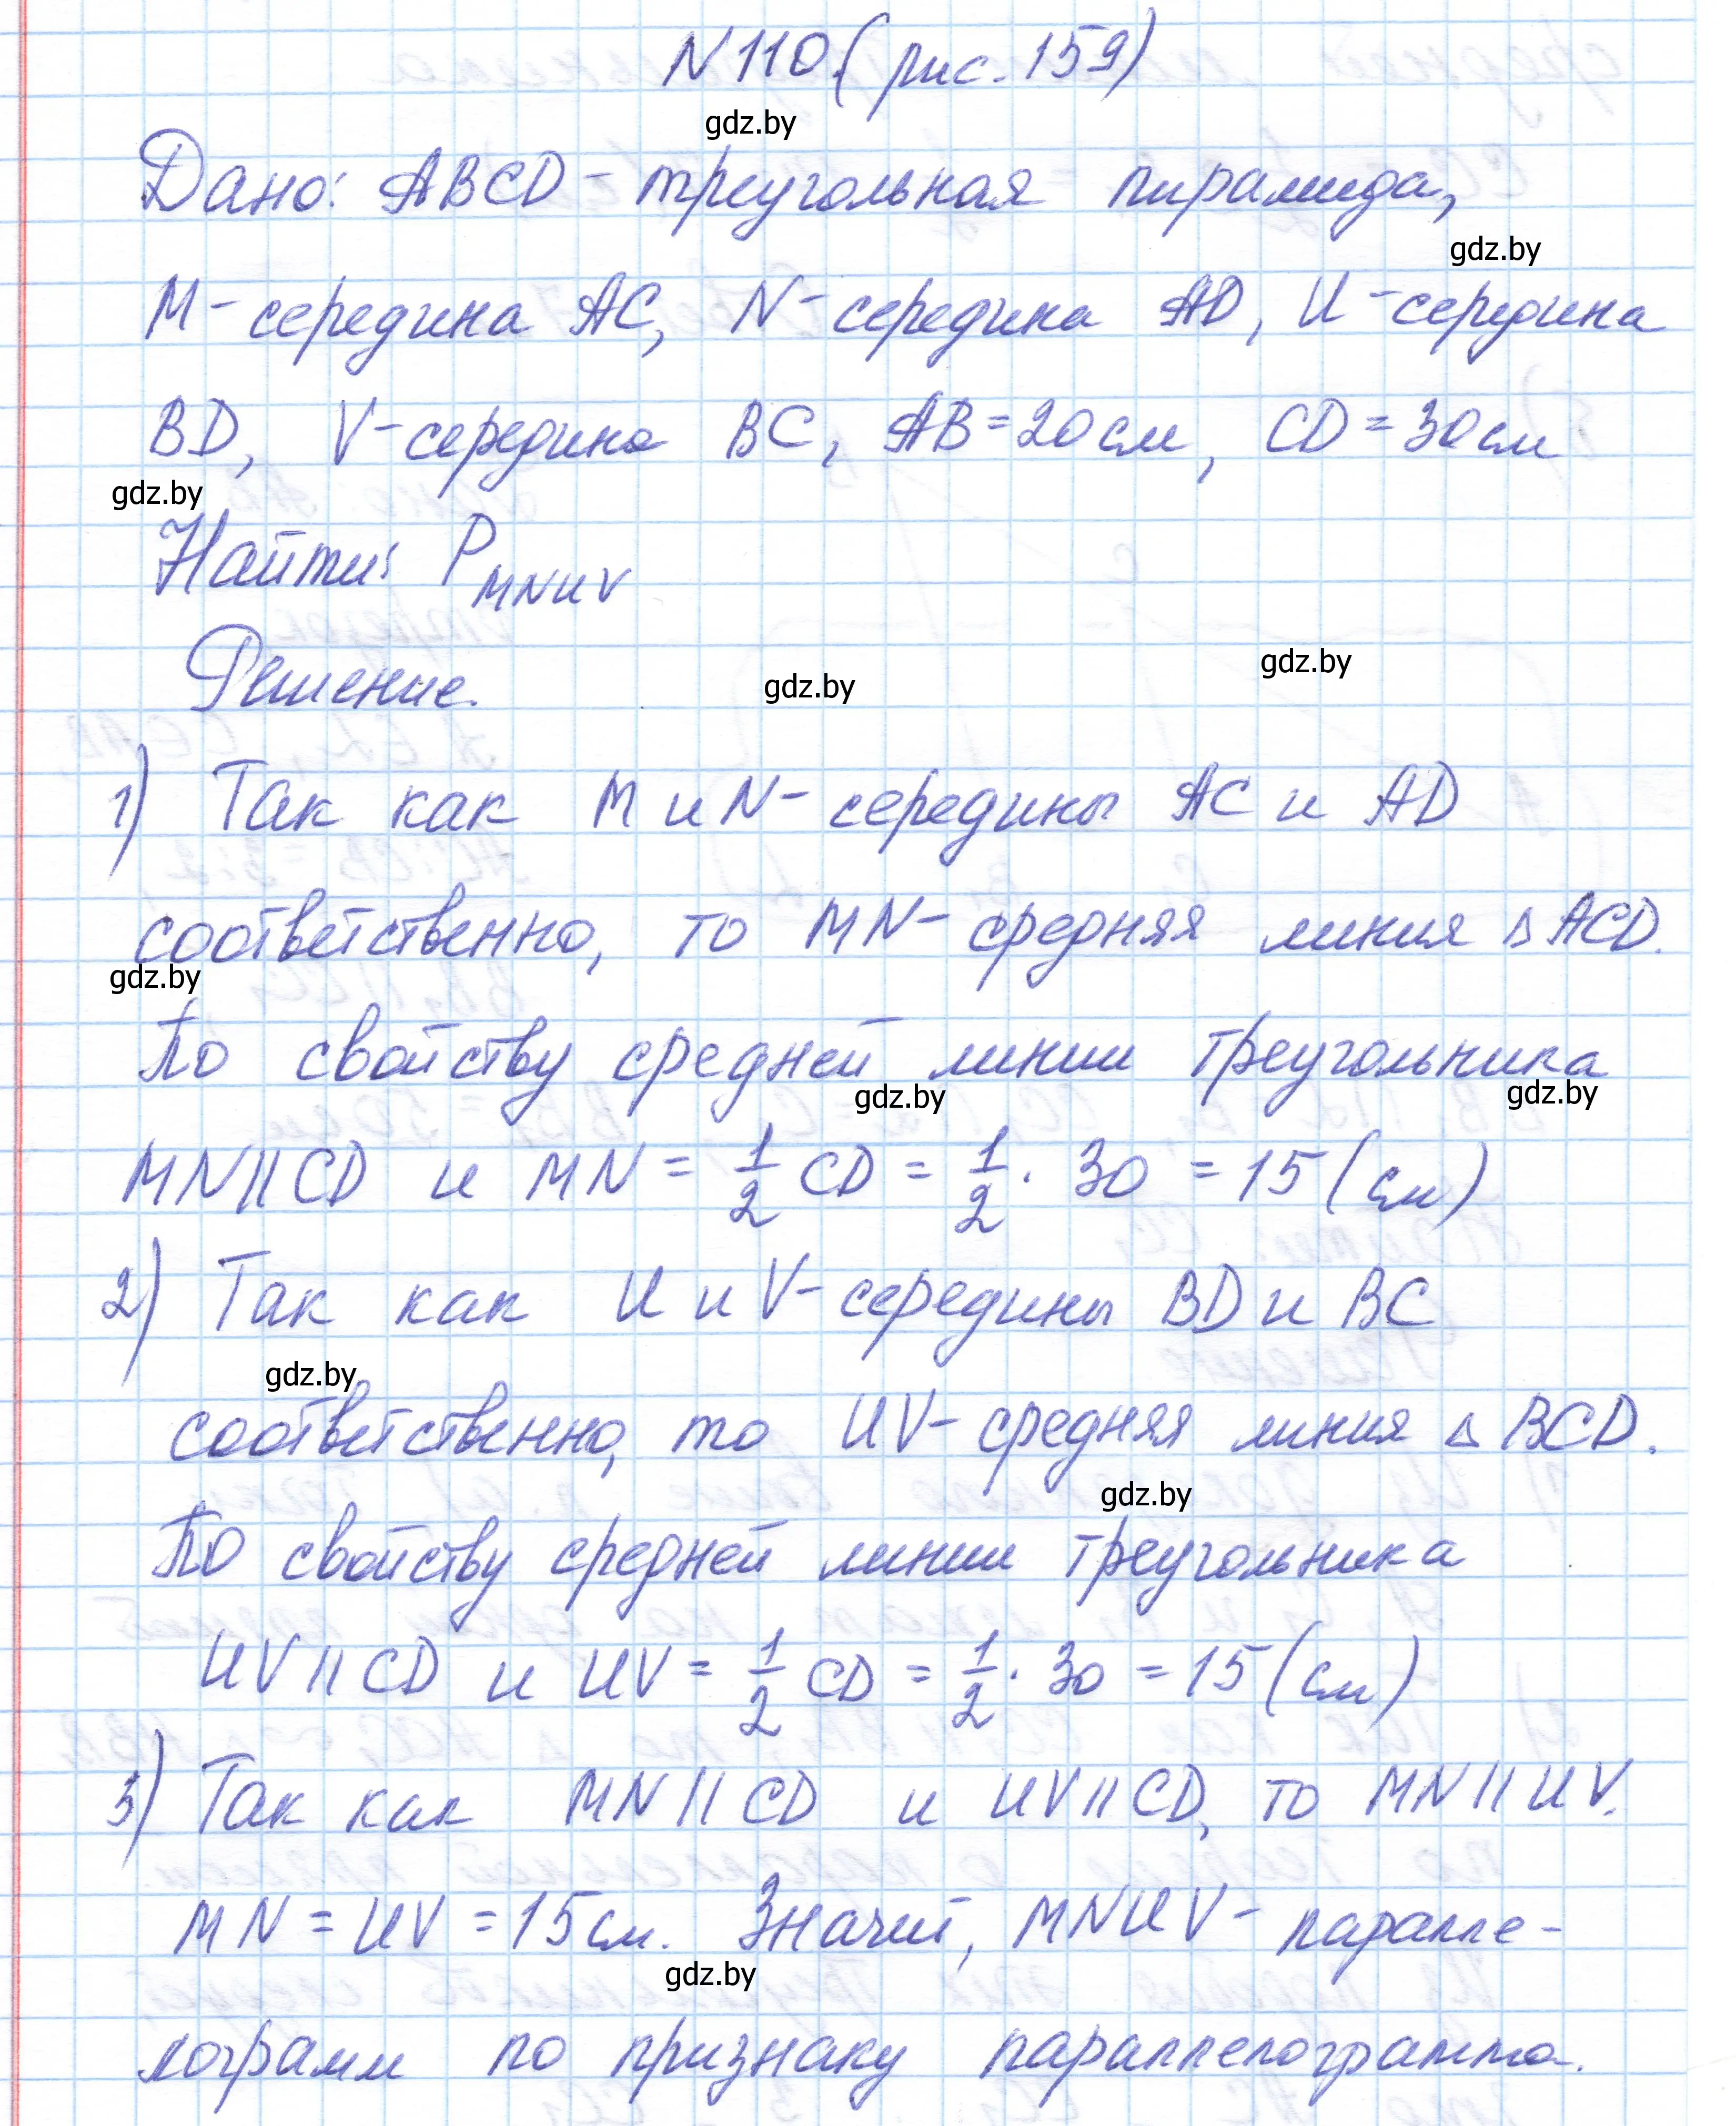 N 110 (рис. 159)
gdz.by
Дано: ABCD - треугольная пирамида,
gdz.by
M - середина AC, N - середина AD, U - середина
BD, V - середина BC, AB = 20 см, CD = 30 см
gdz.by
Найти: P MNUV
gdz.by
Решение.
gdz.by
1) Так как M и N - середины AC и AD
соответственно, то MN - средняя линия △ ACD.
gdz.by
По свойству средней линии треугольника
gdz.by
gdz.by
MN || CD и MN = 1/2 CD = 1/2 · 30 = 15 (см)
2) Так как U и V - середины BD и BC
gdz.by
соответственно, то UV - средняя линия △ BCD.
gdz.by
По свойству средней линии треугольника
UV || CD и UV = 1/2 CD = 1/2 · 30 = 15 (см)
3) Так как MN || CD и UV || CD, то MN || UV.
MN = UV = 15 см. Значит, MNUV - паралле-
gdz.by
лограмм по признаку параллелограмма.